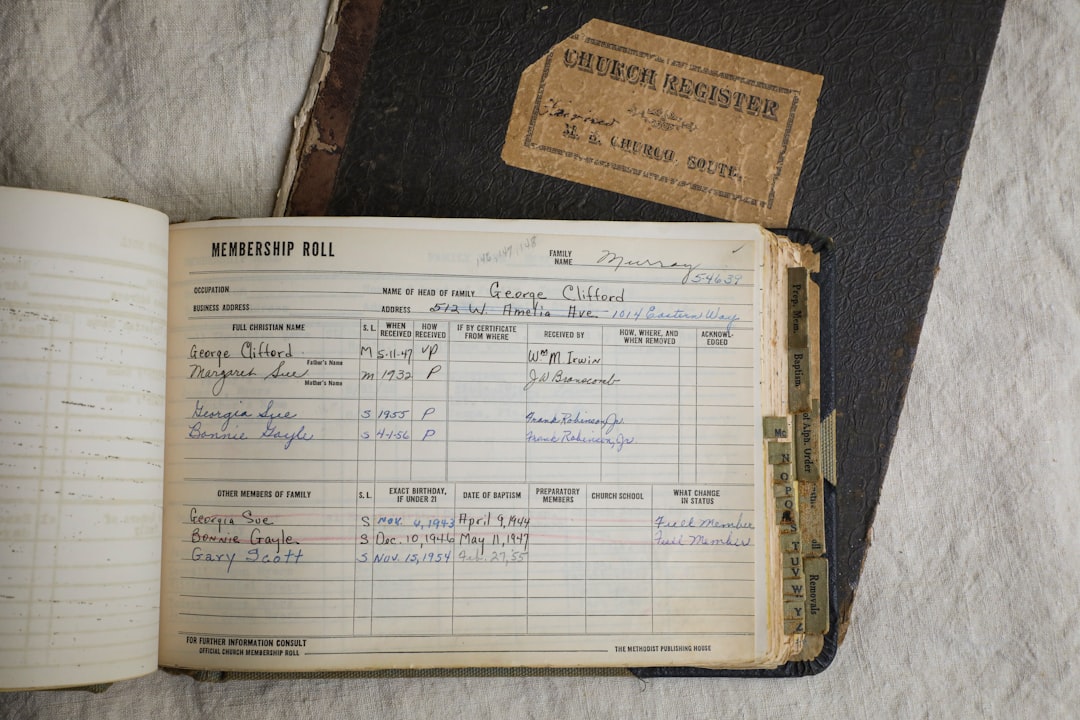 CHURCH REGISTER
M. E. CHURCH, SOUTH.
MEMBERSHIP ROLL
146, 147, 148
FAMILY NAME Murray
54639
OCCUPATION NAME OF HEAD OF FAMILY George Clifford
BUSINESS ADDRESS ADDRESS 512 W. Amelia Ave. - 1014 Eastern Way
FULL CHRISTIAN NAME S. L. WHEN RECEIVED HOW RECEIVED IF BY CERTIFICATE FROM WHERE RECEIVED BY HOW, WHERE, AND WHEN REMOVED ACKNOWL- EDGED
George Clifford M 5-11-47 VP Wm M Irwin
Father's Name
Margaret Sue M 1932 P J W Branscomb
Mother's Name
Georgia Sue S 1955 P Frank Robinson, Jr.
Bonnie Gayle S 4-1-56 P Frank Robinson, Jr.
OTHER MEMBERS OF FAMILY S. L. EXACT BIRTHDAY, IF UNDER 21 DATE OF BAPTISM PREPARATORY MEMBERS CHURCH SCHOOL WHAT CHANGE IN STATUS
Georgia Sue S Nov. 4, 1943 April 9, 1944 Full Member
Bonnie Gayle S Dec. 10, 1946 May 11, 1947 Full Member
Gary Scott S Nov. 15, 1954 Feb. 27, '55
FOR FURTHER INFORMATION CONSULT
OFFICIAL CHURCH MEMBERSHIP ROLL THE METHODIST PUBLISHING HOUSE
Prep. Mem.
Baptism
of Alph. Order
Mc
N
O
P
S
T
U
V
W
Y
Z
Removals